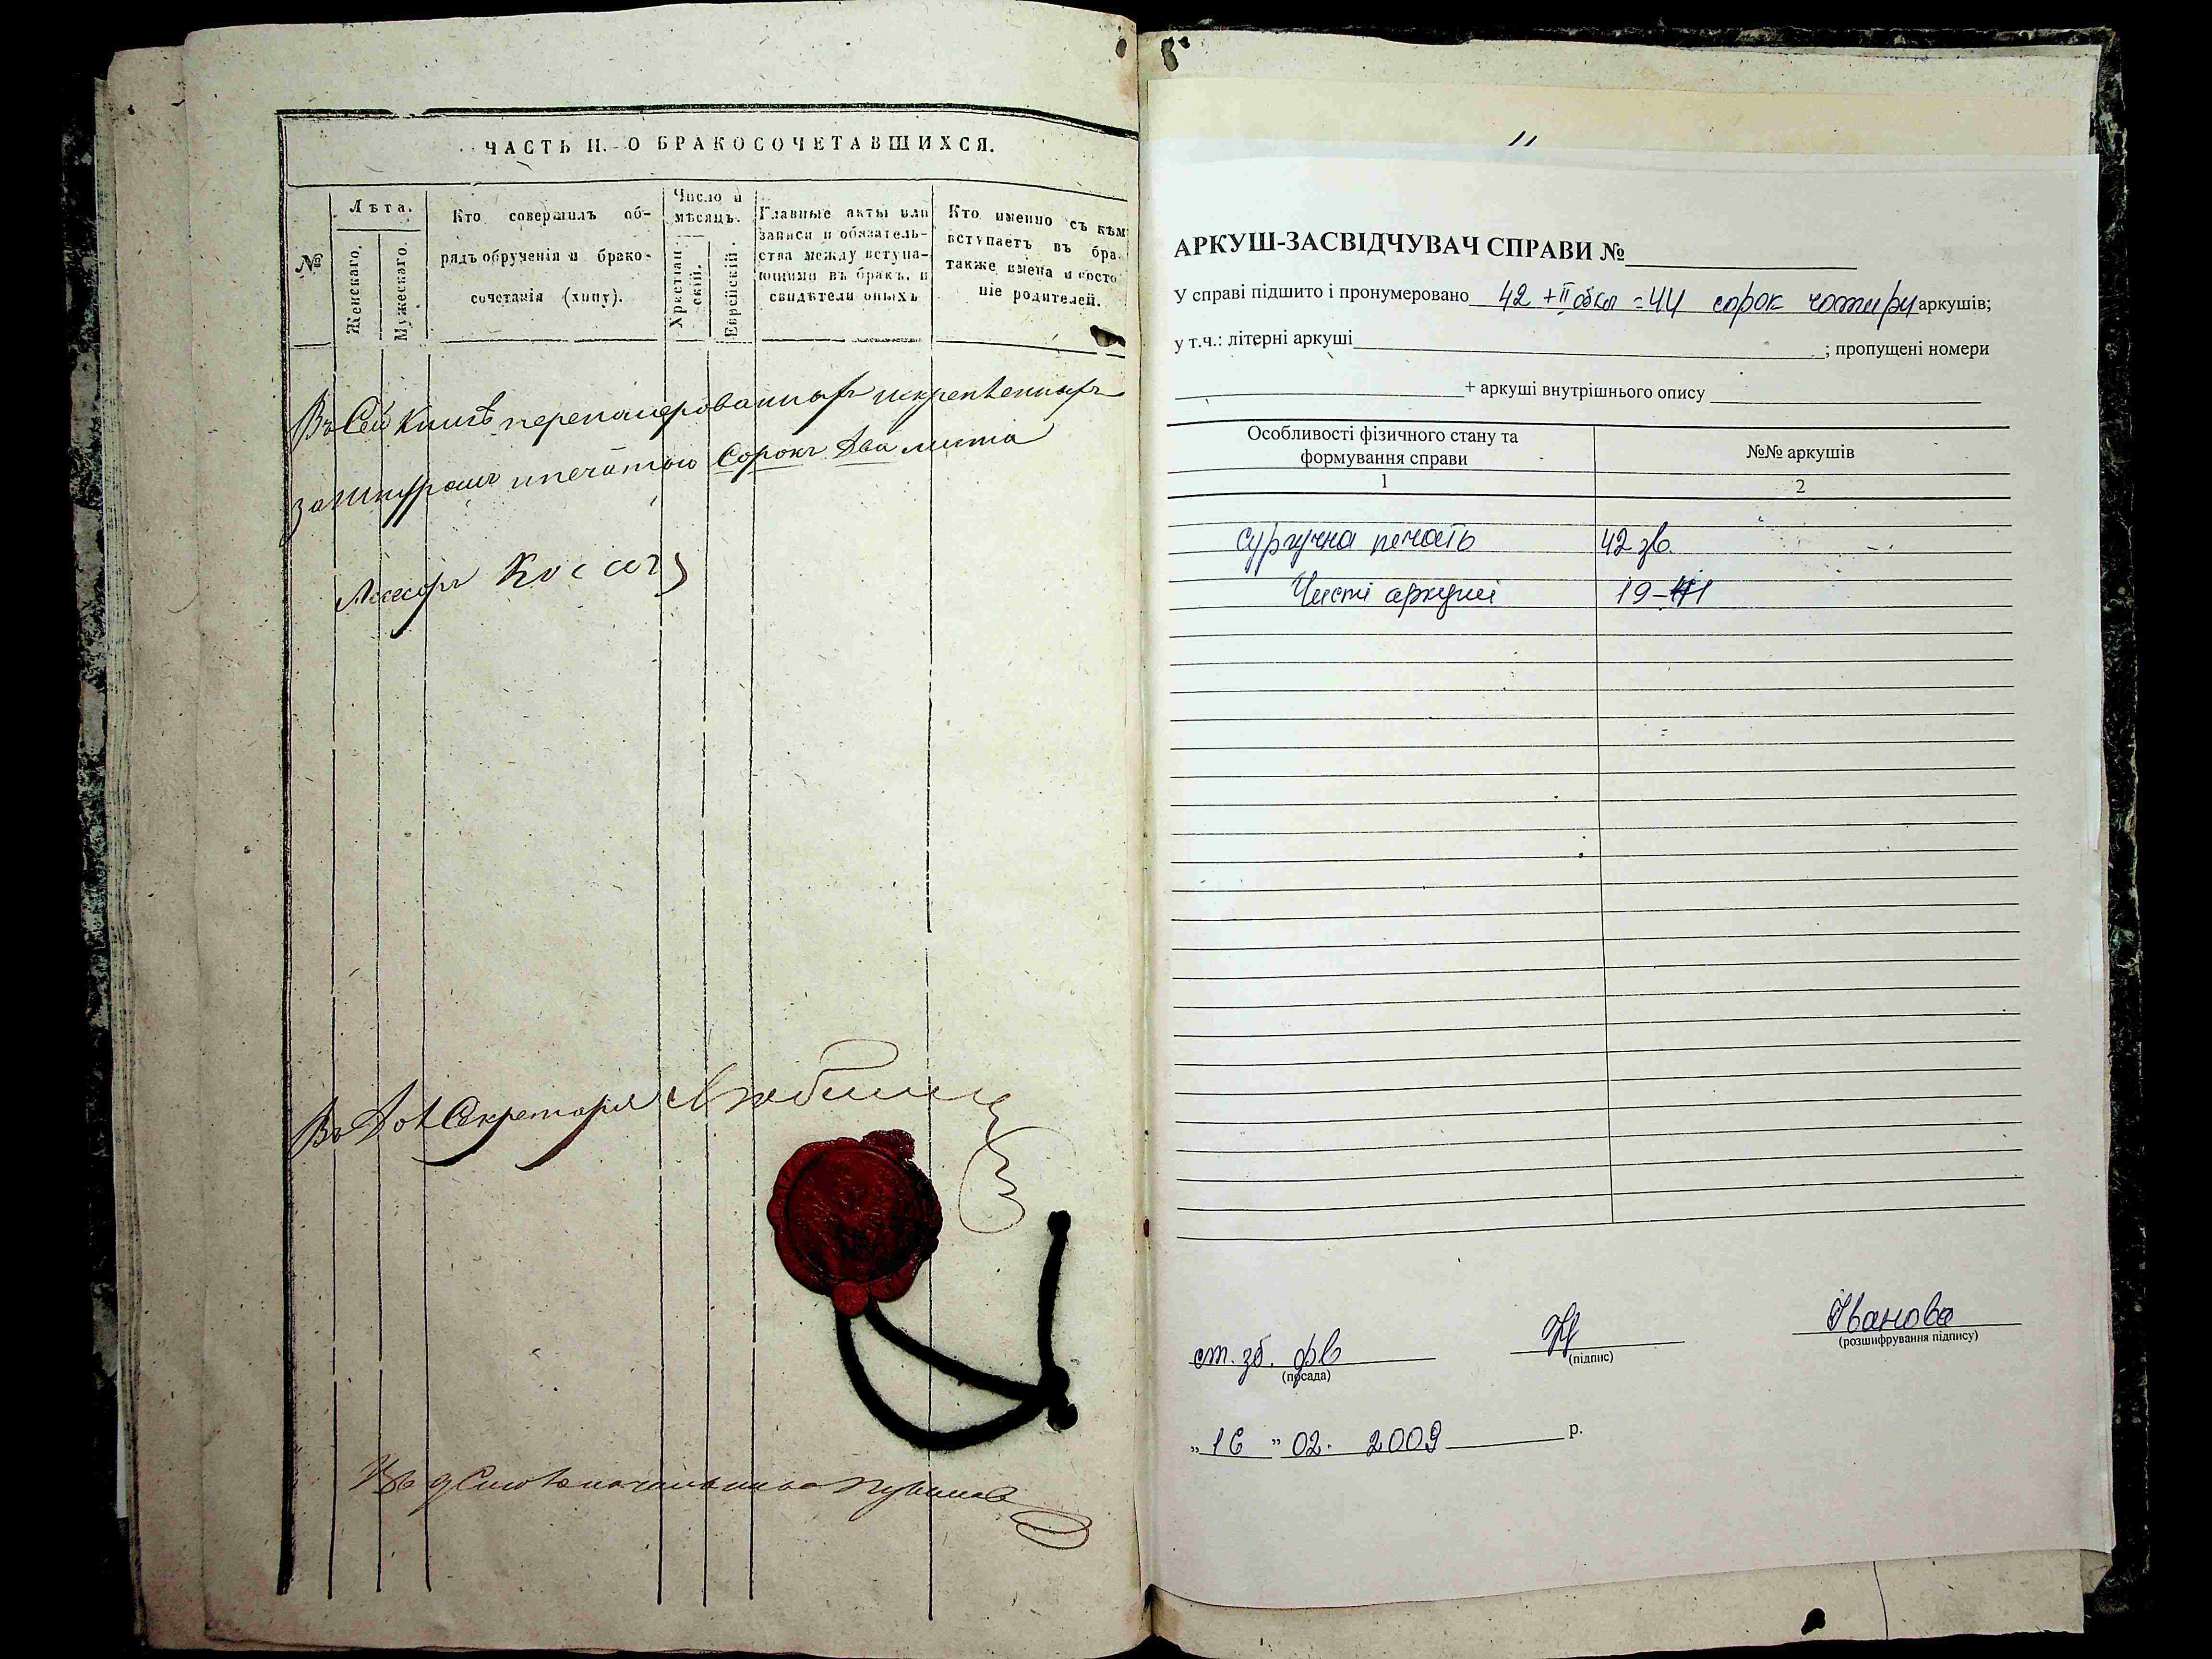 ЧАСТЬ II. О БРАКОСОЧЕТАВШИХСЯ.
№
Лѣта.
Женскаго.
Мужескаго.
Кто совершилъ об-
рядъ обрученія и брако-
сочетанія (хипу).
Число и
мѣсяцъ.
Христіан-
скій.
Еврейскій.
Главные акты или
записи и обязатель-
ства между вступа-
ющими въ бракъ, и
свидѣтели оныхъ
Кто именно съ кѣм
вступаетъ въ бра-
также имена и состо
ніе родителей.
Въ Сей Книгѣ перенумерованныхъ искрепленныхъ
за шнуромъ и печатью Сорокъ Два листа
Въ Дол Секретаря
АРКУШ-ЗАСВІДЧУВАЧ СПРАВИ №
У справі підшито і пронумеровано 42 + II обкл = 44 сорок чотири аркушів;
у т.ч.: літерні аркуші ; пропущені номери
+ аркуші внутрішнього опису
Особливості фізичного стану та
формування справи
№№ аркушів
1
2
сургучна печать 42 зв.
Чисті аркуші 19-41
ст. зб. фв
(посада)
(підпис)
Іванова
(розшифрування підпису)
„ 16 ” 02. 2009 р.